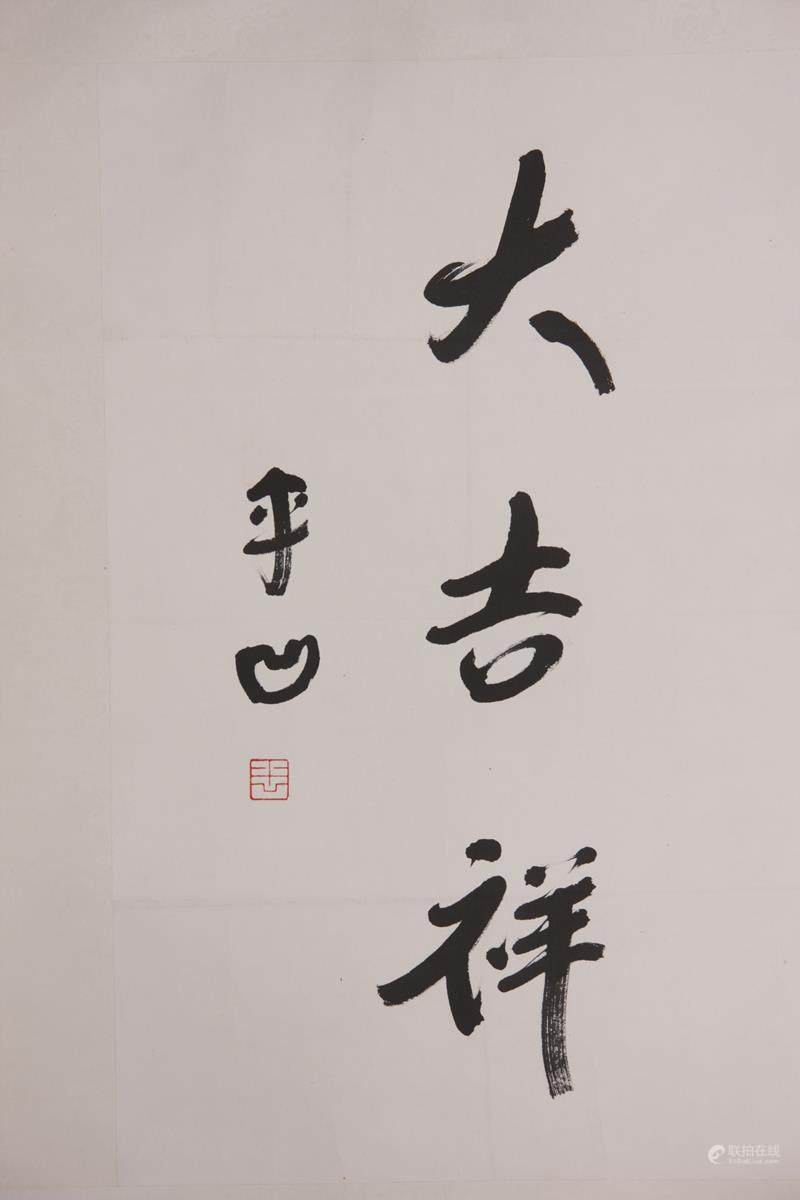 大吉祥
平凹
联拍在线